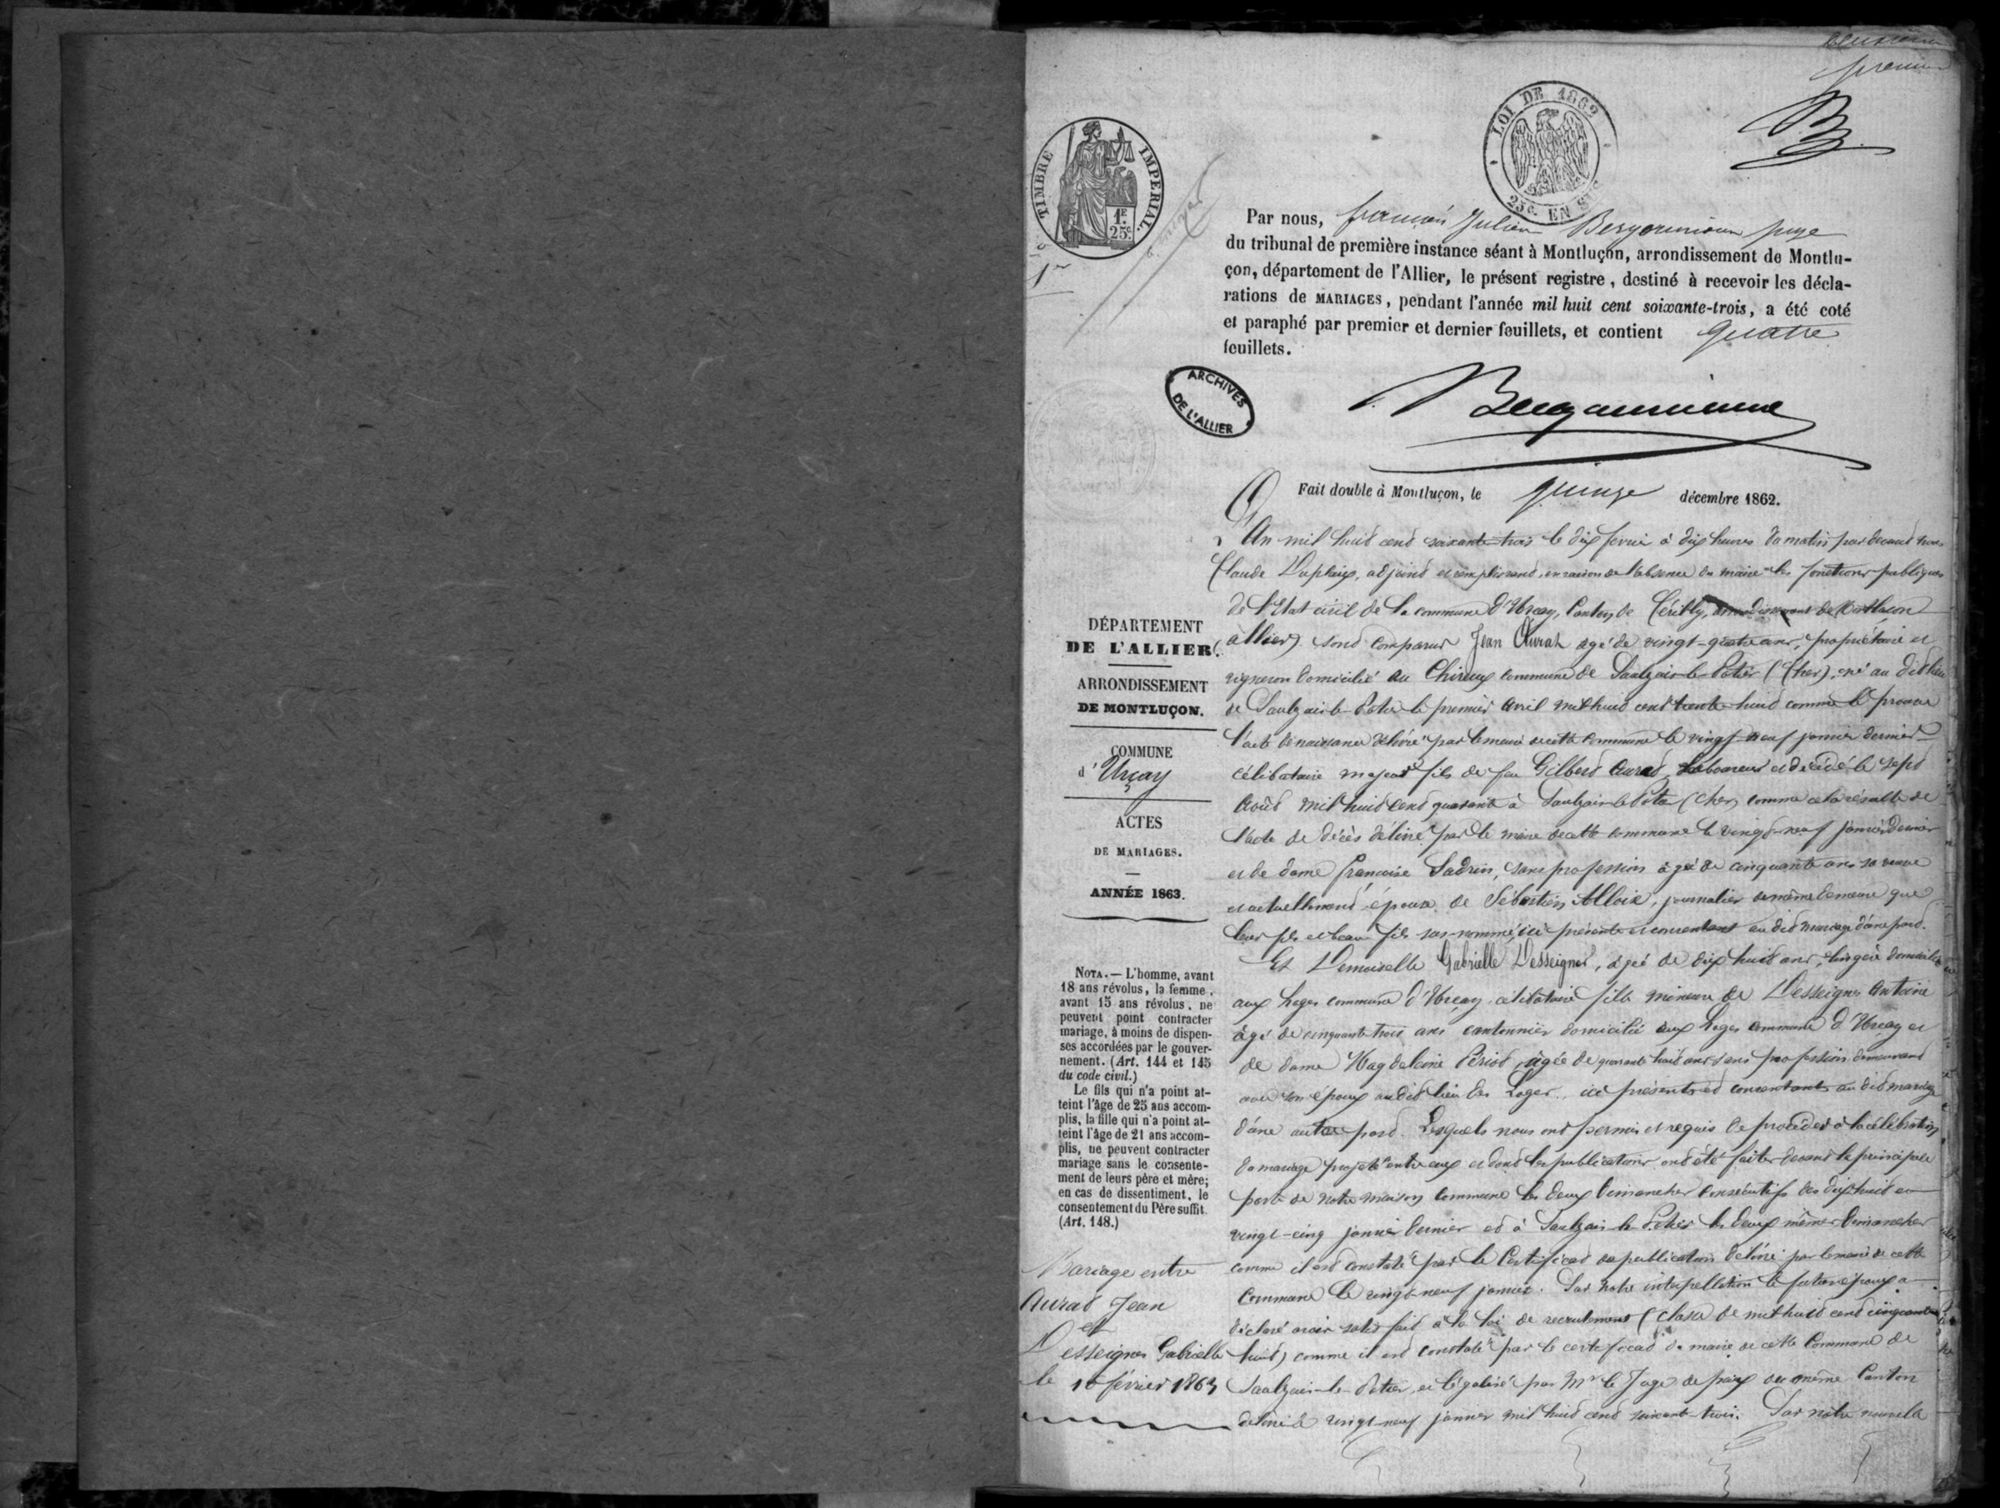 premier
TIMBRE IMPERIAL
1F.
25c.
LOI DE 1862
25c. EN S
Par nous, françois Julien Bergounioux juge
du tribunal de première instance séant à Montluçon, arrondissement de Montlu-
çon, département de l'Allier, le présent registre, destiné à recevoir les décla-
rations de MARIAGES, pendant l'année mil huit cent soixante-trois, a été coté
et paraphé par premier et dernier feuillets, et contient quatre
feuillets.
ARCHIVES
DE L'ALLIER
Bergounioux
Fait double à Montluçon, le quinze décembre 1862.
DÉPARTEMENT
DE L'ALLIER.
ARRONDISSEMENT
DE MONTLUÇON.
COMMUNE
d'Urçay
ACTES
DE MARIAGES.
ANNÉE 1863.
NOTA. — L'homme, avant
18 ans révolus, la femme,
avant 15 ans révolus, ne
peuvent point contracter
mariage, à moins de dispen-
ses accordées par le gouver-
nement. (Art. 144 et 145
du code civil.)
Le fils qui n'a point at-
teint l'âge de 25 ans accom-
plis, la fille qui n'a point at-
teint l'âge de 21 ans accom-
plis, ne peuvent contracter
mariage sans le consente-
ment de leurs père et mère;
en cas de dissentiment, le
consentement du Père suffit.
(Art. 148.)
Mariage entre
Aurat Jean
et
Desseignes Gabrielle
le 10 février 1863
L'An mil huit cent soixante-trois le dix fevrier à dix heures du matin par devant nous
Claude Duplaix, adjoint et remplissant, en raison de l'absence du maire les fonctions publiques
de l'Etat civil de la commune d'Urçay, Canton de Cérilly, arrondissement de Montluçon
(allier) sont comparus Jean Aurat agé de vingt-quatre ans, propriétaire et
vigneron domicilié au Chiroux commune de Saulzais-le-Potier (Cher), né au dit lieu
de Saulzais-le-Potier le premier avril mil huit cent trente-huit comme le prouve
l'acte de naissance délivré par le maire de cette commune le vingt-neuf janvier dernier
célibataire majeur fils de feu Gilbert Aurat, laboureur et décédé le sept
août mil huit cent quarante à Saulzais-le-Potier (Cher) comme cela résulte de
l'acte de décès délivré par le maire de cette commune le vingt-neuf janvier dernier
et de dame françoise Sadrin, sans profession agée de cinquante ans sa veuve
et actuellement épouse de Sébastien Alloix, journalier de même demeure que
leur fils et beau-fils sus-nommé, ici présents et consentant au dit mariage d'une part.
Et Demoiselle Gabrielle Desseignes, agée de dix huit ans, lingère domiciliée
aux Loges commune d'Urçay, célibataire fille mineure de Desseignes Antoine
âgé de cinquante trois ans cantonnier domicilié aux Loges commune d'Urçay et
de dame Magdeleine Périot, agée de quarante huit ans sans profession demeurant
avec son époux au dit lieu des Loges, ici présents et consentants au dit mariage
d'une autre part. Lesquels nous ont permis et requis de procéder à la célébration
du mariage projeté entre eux et dont les publications ont été faites devant la principale
porte de notre maison Commune les deux Dimanches consécutifs des dix huit et
vingt-cinq janvier dernier et à Saulzais-le-Potier les deux mêmes Dimanches
comme il est constaté par le Certificat de publication délivré par le maire de cette
Commune le vingt-neuf janvier. Sur notre interpellation le futur époux a
déclaré avoir satisfait à la loi de recrutement (classe de mil huit cent cinquante
huit) comme il est constaté par le certificat du maire de cette Commune de
Saulzais-le-Potier, et légalisé par Mr le Juge de paix du même Canton
délivré le vingt-neuf janvier mil huit cent soixante-trois. Sur notre nouvelle